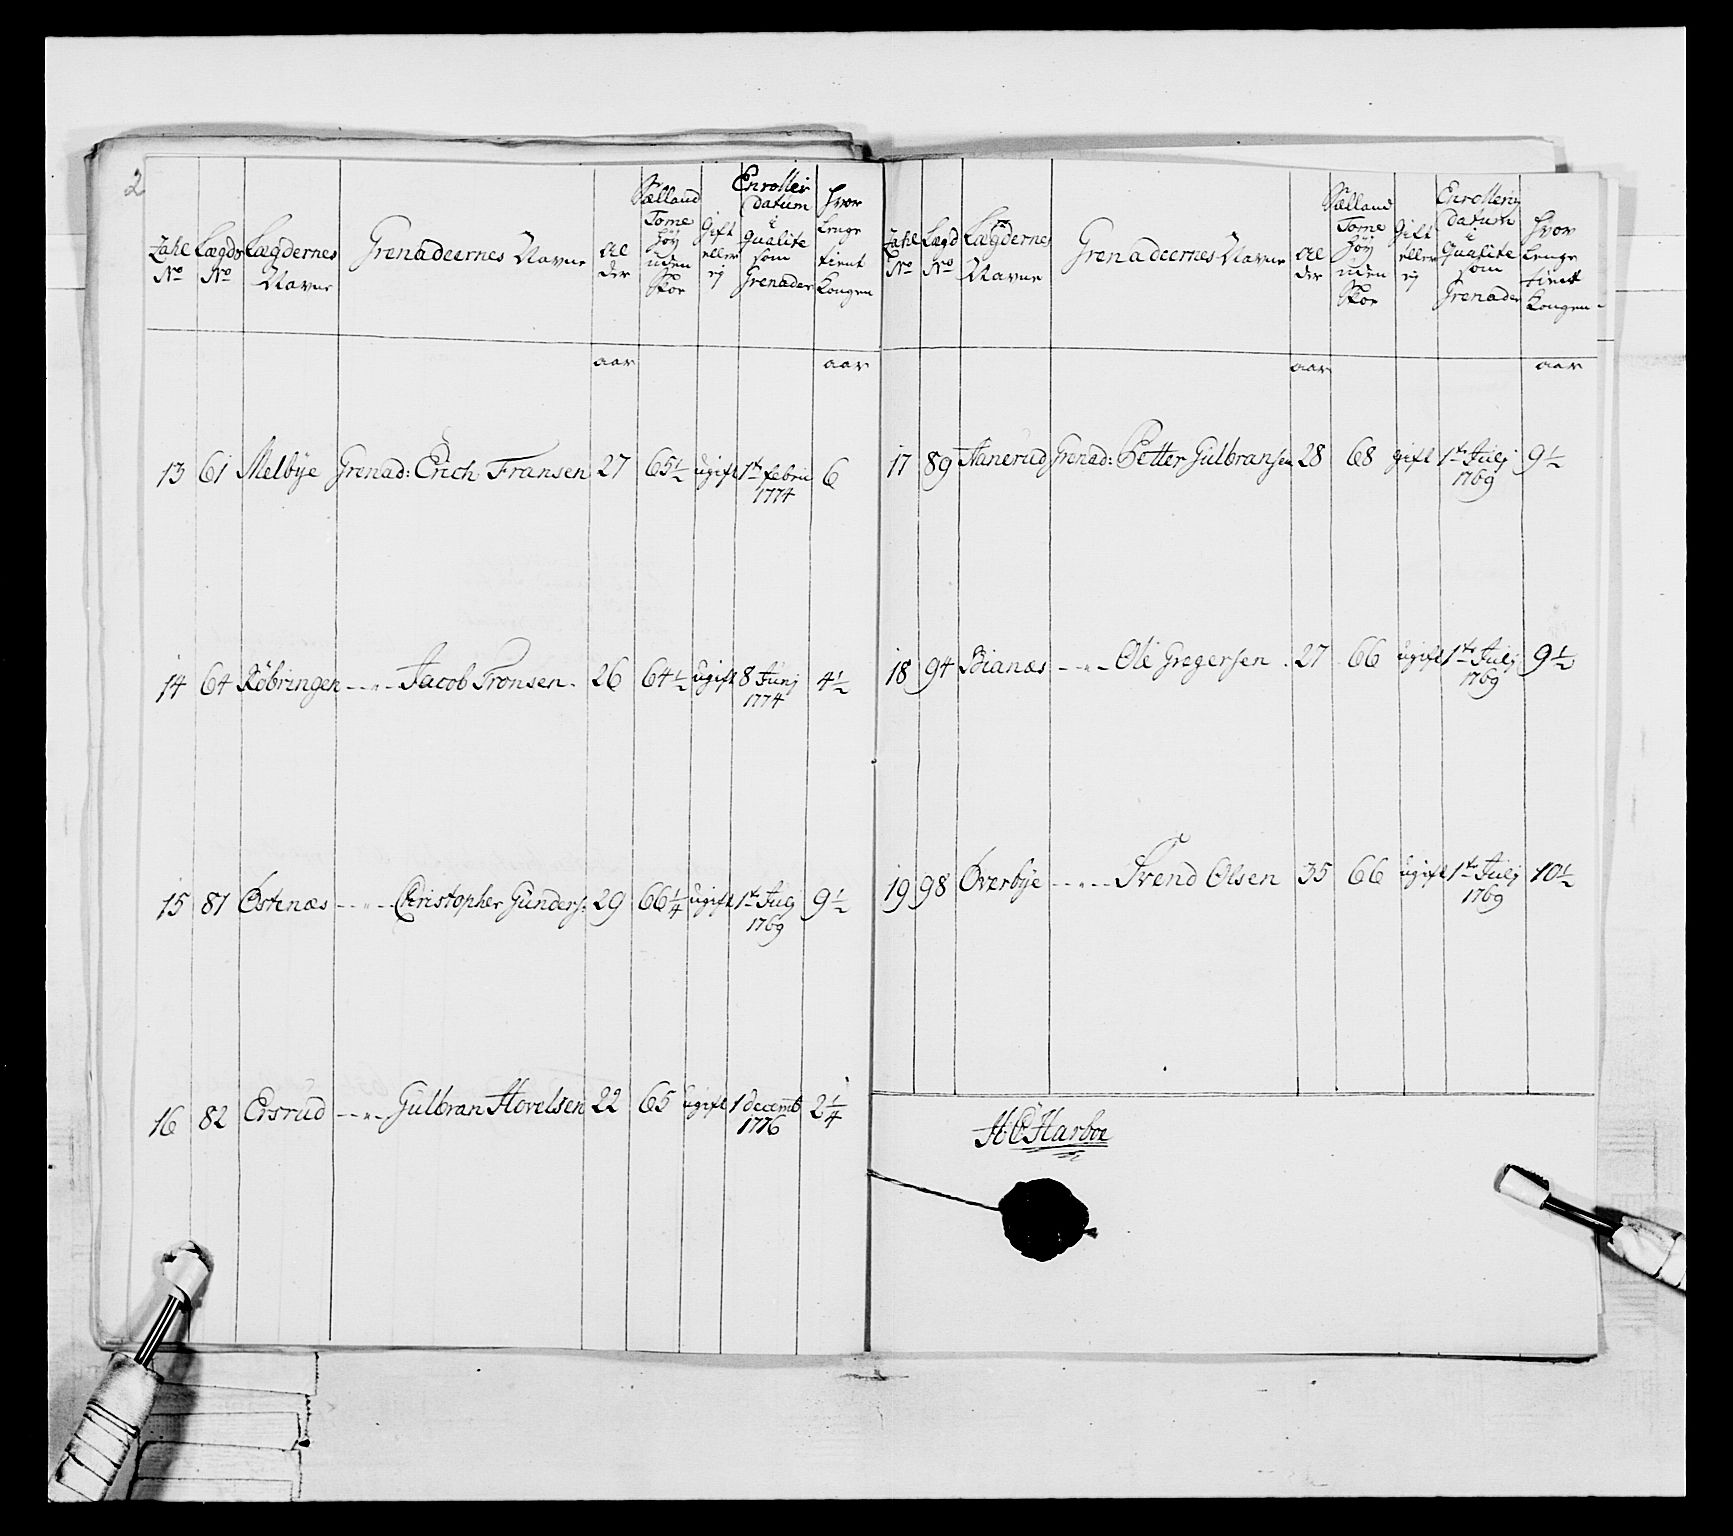 2
Zahl No | Lægds No | Lægdernes Navne | Grenadeernes Navne | Alder | Sælland Tome høy uden Skoe | Gift eller ej | Enroller datum i Qualite som Grenader | hvor lenge tient Kongen
aar | aar
13 | 61 | Melbye | Grenad: Erich Fransen | 27 | 65½ | ugift | 1te febru 1774 | 6
14 | 64 | Röbringen | --"-- Jacob Tronsen | 26 | 64½ | ugift | 8 Junj 1774 | 4½
15 | 87 | Østenæs | --"-- Christopher Gunders: | 29 | 66¼ | ugift | 1te Julj 1769 | 9½
16 | 82 | Ersrud | --"-- Gulbran Hovelsen | 22 | 65 | ugift | 1 decemb 1776 | 2¼
Zahl No | Lægd No | Lægdernes Navne | Grenadeernes Navne | Alder | Sælland Tome høy uden Skoe | Gift eller ej | Enrollerin datum i Qualite som Grenader | hvor lenge tient Kongen
aar | aar
17 | 89 | Hanerud | Grenad: Petter Gulbransen | 28 | 68 | gift | 1te Julj 1769 | 9½
18 | 94 | Bianæs | --"-- Ole Gregersen | 27 | 66 | ugift | 1te Julj 1769 | 9½
19 | 98 | Øverbye | --"-- Svend Olsen | 35 | 66 | ugift | 1te Julj 1769 | 10½
H.C. Harboe